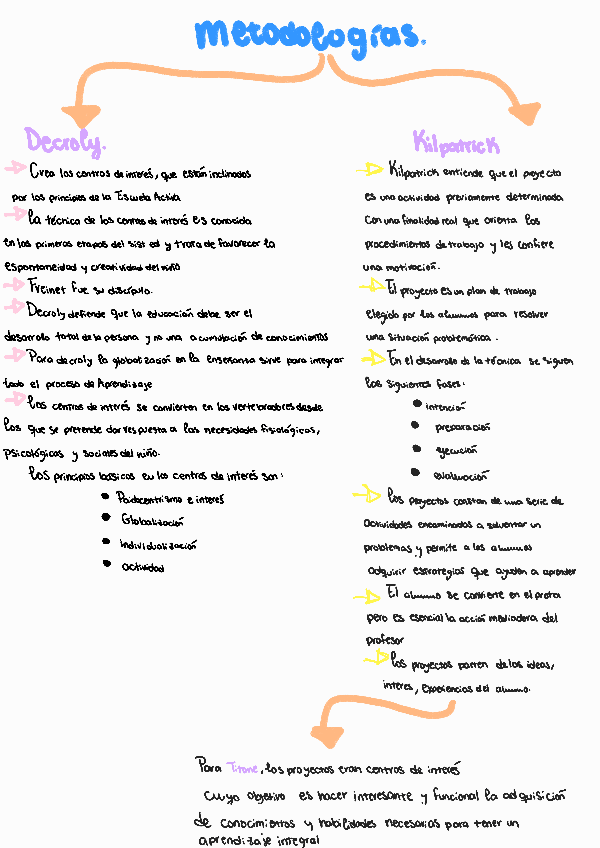 Metodologías.
Decroly.
Crea los centros de interés, que están inclinados
por los principios de la Escuela Activa
la técnica de los centros de interés es conocida
en las primeras etapas del sist ed y trata de favorecer la
espontaneidad y creatividad del niño
Freinet fue su discípulo.
Decroly defiende que la educación debe ser el
desarrollo total de la persona y no una acumulación de conocimientos
Para decroly la globalización en la enseñanza sirve para integrar
todo el proceso de Aprendizaje
los centros de interés se convierten en los vertebradores desde
los que se pretende dar respuesta a las necesidades fisiológicas,
psicológicas y sociales del niño.
los principios básicos en los centros de interés son:
Paidocentrismo e interés
Globalización
Individualización
actividad
Kilpatrick
Kilpatrick entiende que el proyecto
es una actividad previamente determinada
con una finalidad real que orienta los
procedimientos de trabajo y les confiere
una motivación.
El proyecto es un plan de trabajo
elegido por los alumnos para resolver
una situación problemática.
En el desarrollo de la técnica se siguen
las siguientes fases:
intención
preparación
ejecución
evaluación
los proyectos constan de una serie de
actividades encaminadas a solventar un
problemas y permite a los alumnos
adquirir estrategias que ayudan a aprender
El alumno se convierte en el prota
pero es esencial la acción mediadora del
profesor
los proyectos parten de las ideas,
interes, experiencias del alumno.
Para Titone, los proyectos eran centros de interés
cuyo objetivo es hacer interesante y funcional la adquisición
de conocimientos y habilidades necesarias para tener un
aprendizaje integral